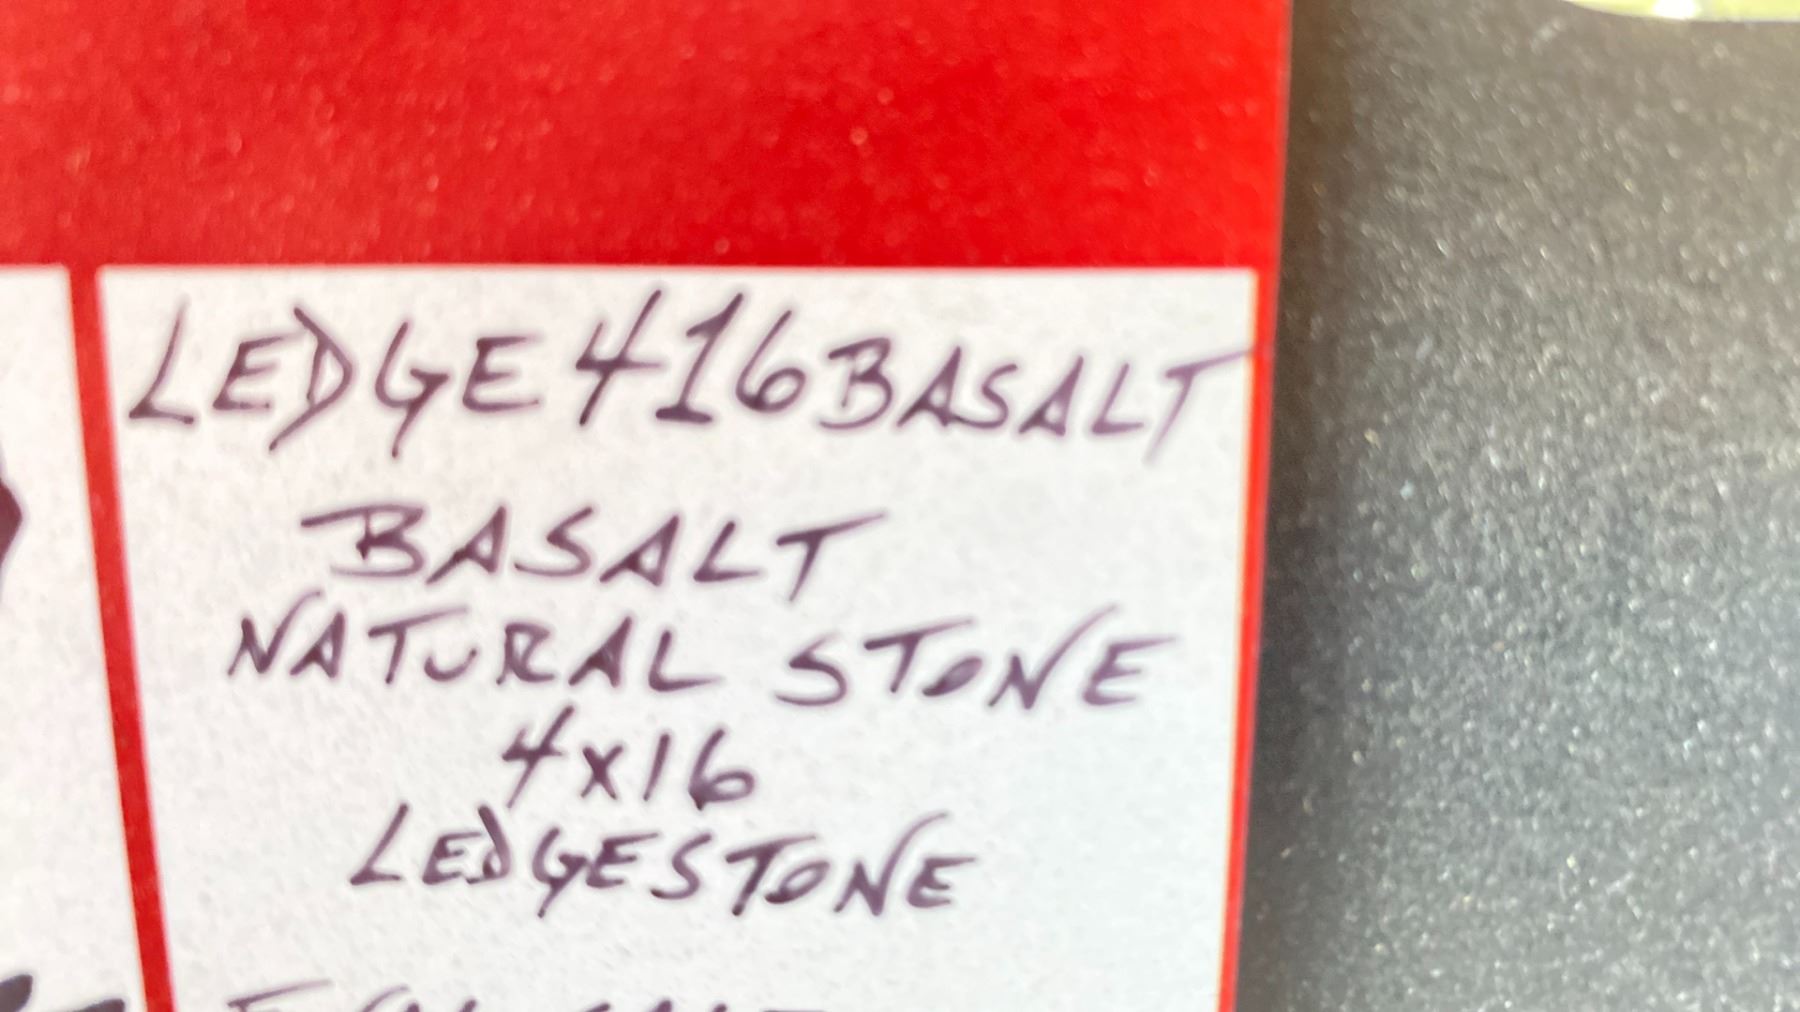 LEDGE416BASALT
BASALT
NATURAL STONE
4x16
LEDGESTONE